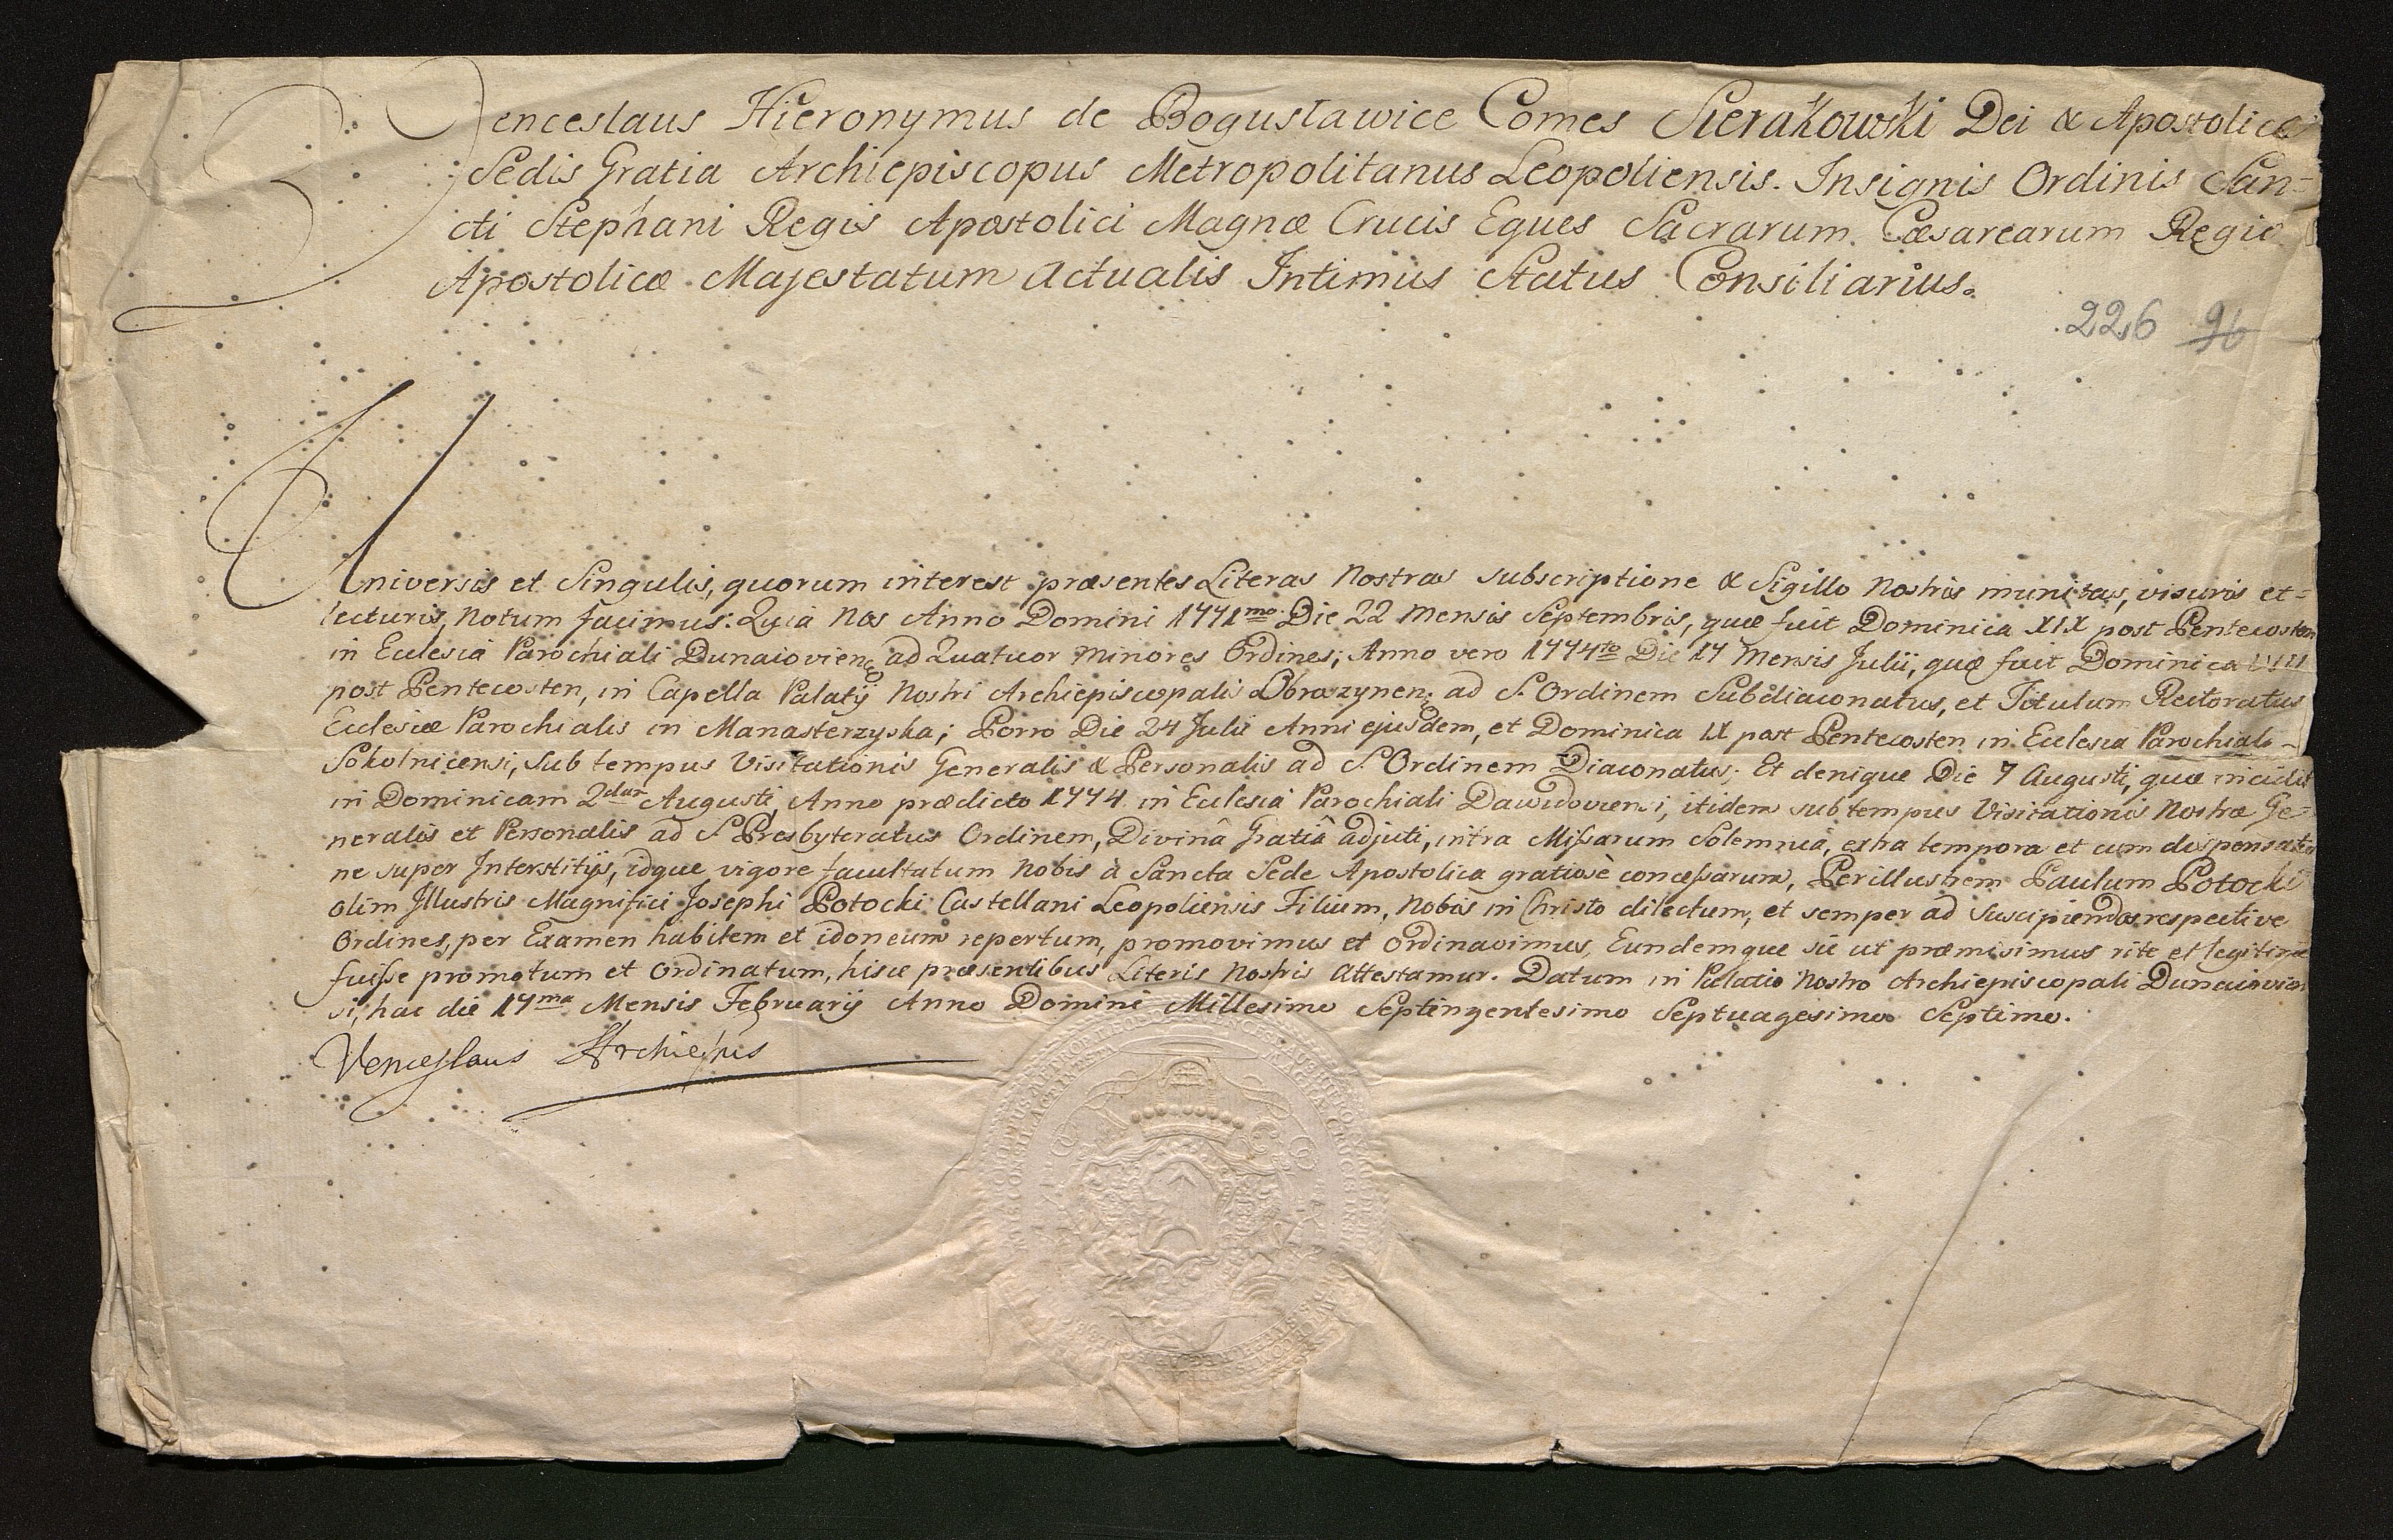 Venceslaus Hieronymus de Bogusławice Comes Sierakowski Dei & Apostolicæ
Sedis Gratia Archiepiscopus Metropolitanus Leopoliensis. Insignis Ordinis San=
cti Stephani Regis Apostolici Magnæ Crucis Eques Sacrarum Cæsarearum Regiæ
Apostolicæ Majestatum Actualis Intimus Status Consiliarius.
226 96
Universis et Singulis, quorum interest præsentes Literas Nostras subscriptione & Sigillo Nostris munitas, visuris et=
lecturis, Notum facimus: Quia Nos Anno Domini 1771mo Die 22 Mensis Septembris, quæ fuit Dominica XIX post Pentecosten
in Eclesiâ Parochiali Dunaiovien: ad Quatuor Minores Ordines; Anno vero 1774to Die 17 Mensis Julii, quæ fuit Dominica VIII
post Pentecosten, in Capella Palatij Nostri Archiepiscopalis Obroszynen: ad S. Ordinem Subdiaconatus, et Titulum Rectoratus
Eclesiæ Parochialis in Manasterzyska; Porro Die 24 Julii Anni ejusdem, et Dominica IX post Pentecosten in Eclesia Parochiali
Sokolnicensi, sub tempus Visitationis Generalis & Personalis ad S. Ordinem Diaconatus; Et denique Die 7 Augusti, quæ incidit
in Dominicam 2dam Augusti, Anno prædicto 1774 in Eclesiâ Parochiali Dawidoviensi, itidem sub tempus Visitationis Nostræ Ge=
neralis et Personalis ad S. Presbyteratus Ordinem, Divinâ Gratiâ adjuti, intra Missarum Solemnia, extra tempora et cum dispensatio
ne super Interstitijs, idque vigore facultatum Nobis à Sancta Sede Apostolica gratiosè concessarum, Perillustrem Paulum Potocki
olim Illustris Magnifici Josephi Potocki Castellani Leopoliensis Filium, Nobis in Christo dilectum, et semper ad suscipiendos respective
Ordines, per Examen habilem et idoneum repertum, promovimus et ordinavimus, Eundemque sic ut præmisimus rite et legitime
fuisse promotum et ordinatum, hisce præsentibus Literis Nostris attestamur. Datum in Palatio Nostro Archiepiscopali Dunaiovien
si, hac die 17ma Mensis Februarij Anno Domini Millesimo Septingentesimo Septuagesimo Septimo.
Venceslaus Archiepus